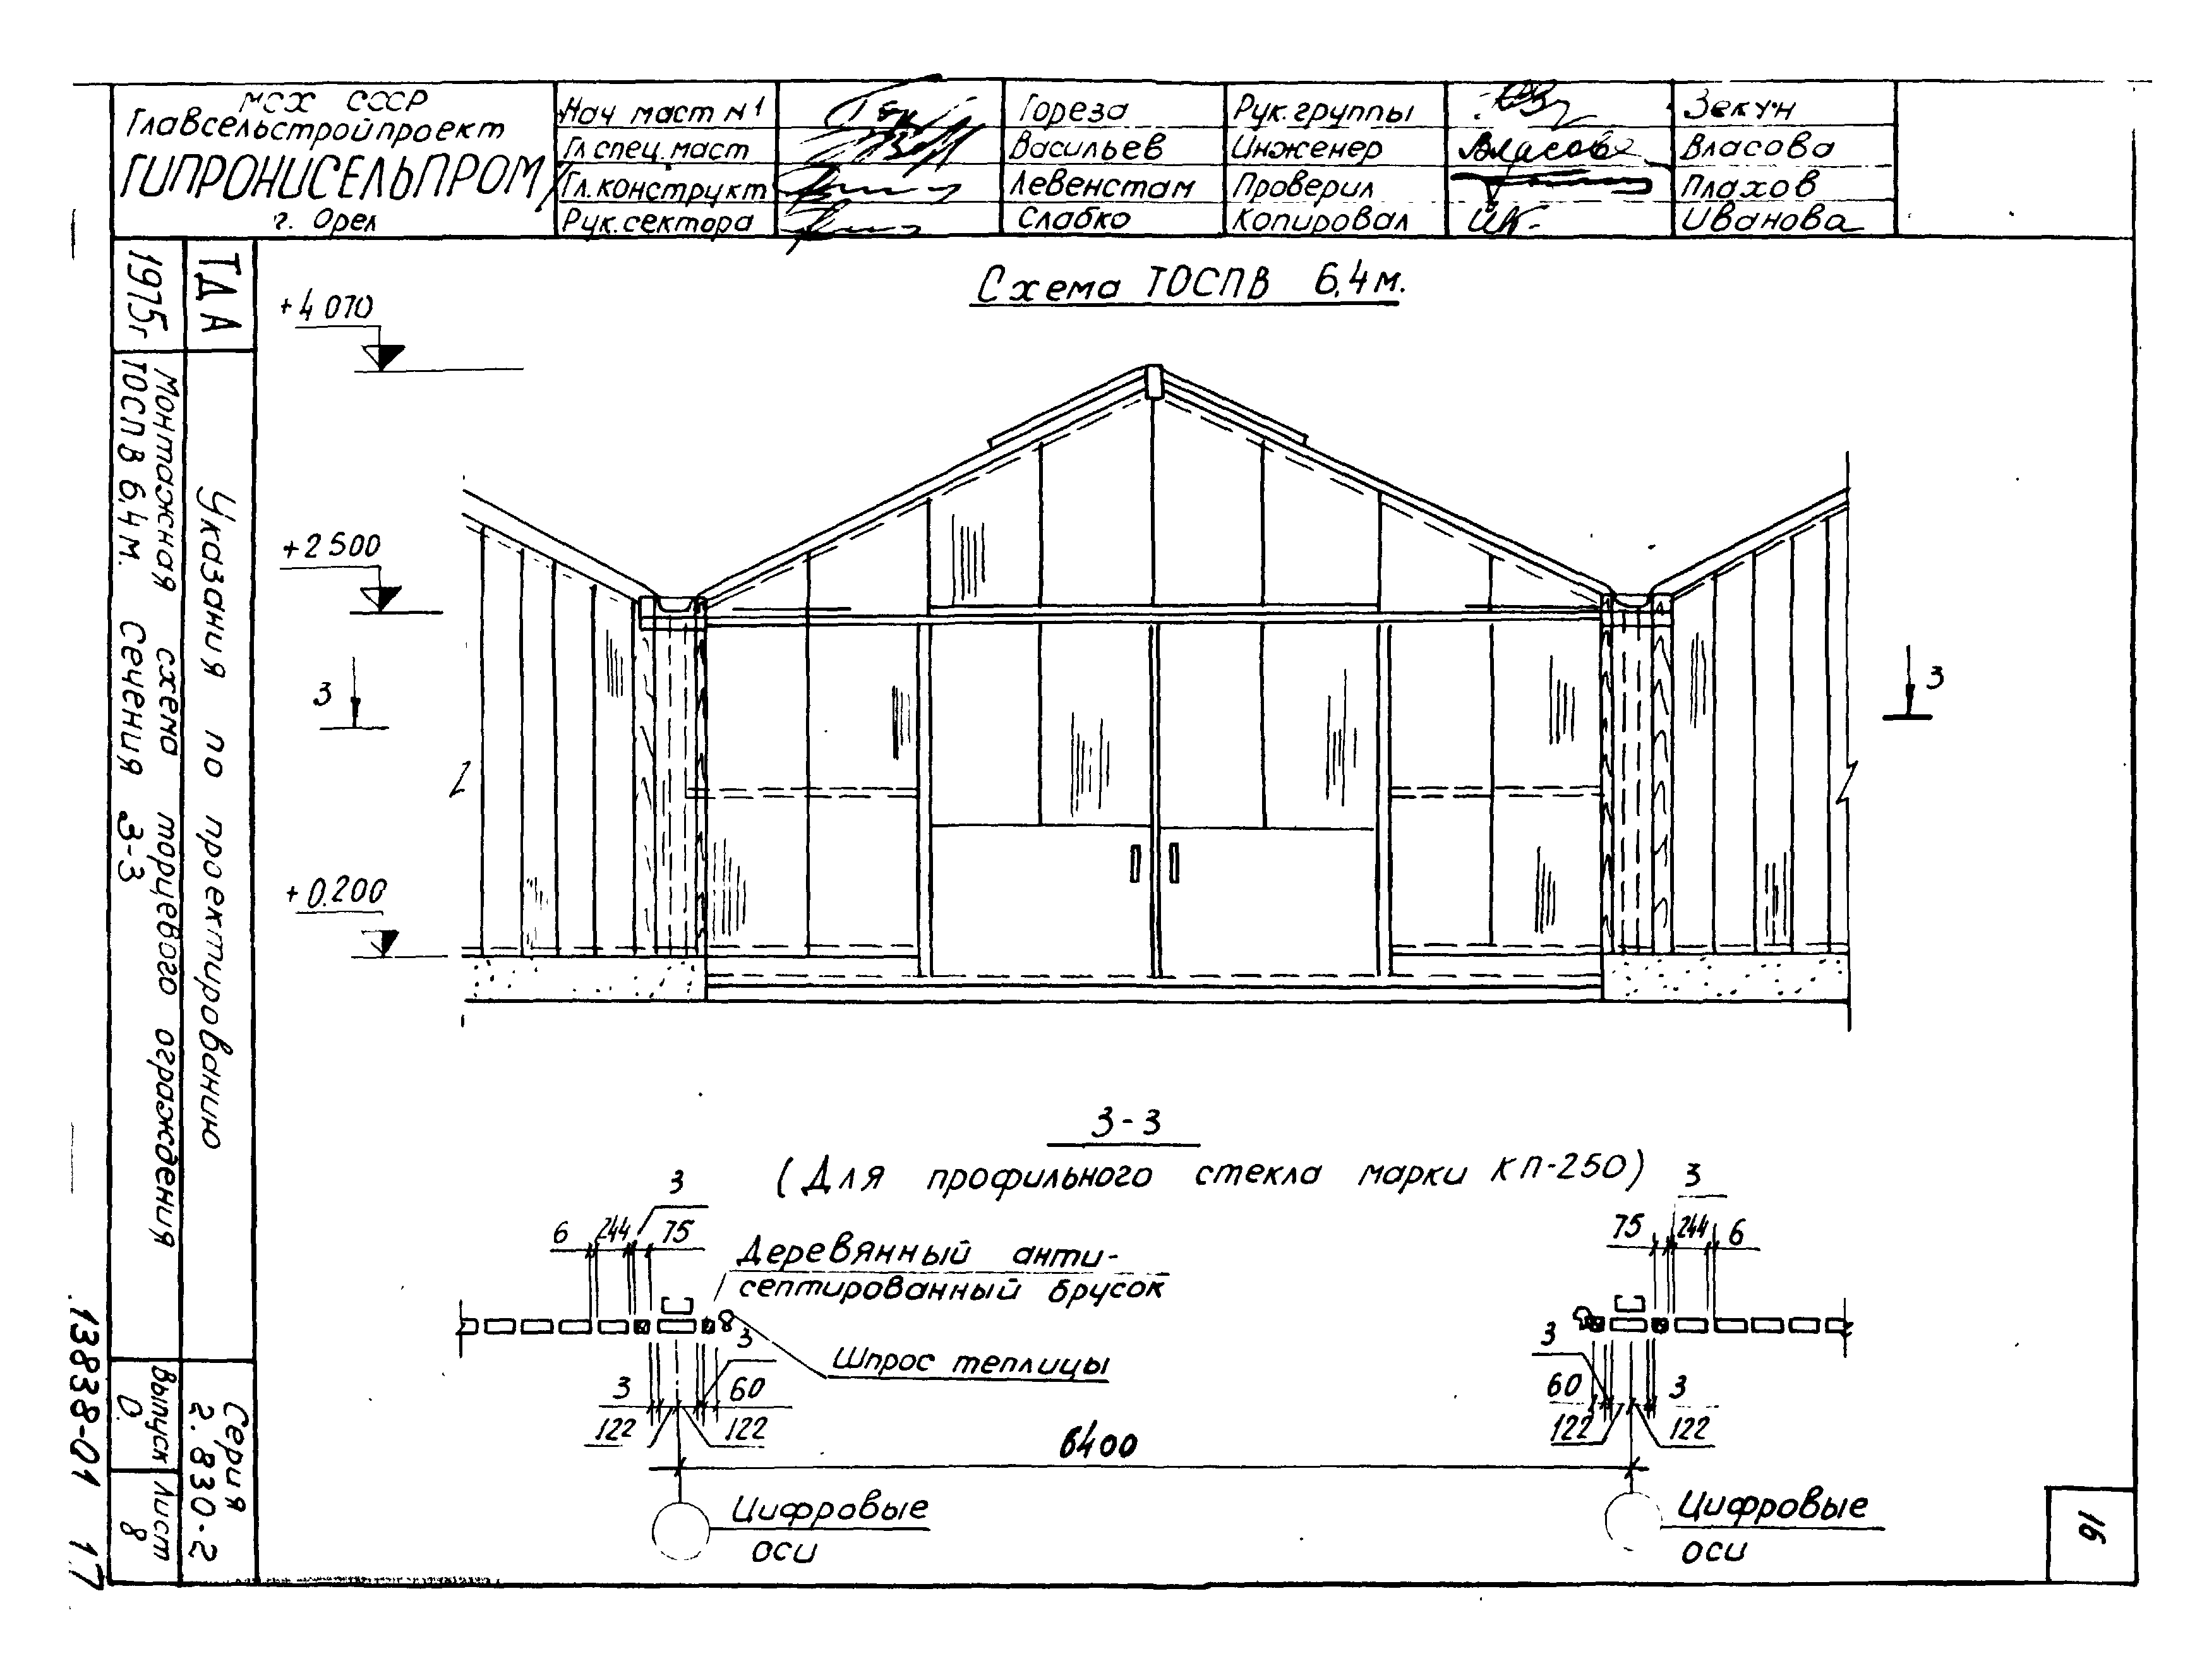 МСХ СССР
Главсельстройпроект
ГИПРОНИСЕЛЬПРОМ
г. Орел
Нач маст №1
Гл спец. маст
Гл. конструкт
Рук. сектора
Гореза
Васильев
Левенстам
Слабко
Рук. группы
Инженер
Проверил
Копировал
Власова
ИК-
Зекун
Власова
Плахов
Иванова
ТДА
1975г
Указания по проектированию
Монтажная схема торцевого ограждения
ТОСПВ 6,4м. Сечения 3-3
Серия
2.830-2
Выпуск
0.
Лист
8
13838-01 17
Схема ТОСПВ 6,4м.
+4 070
+2 500
3
3
+0.200
3-3
(Для профильного стекла марки КП-250)
3
6 244 75
3
75 244 6
Деревянный анти-
септированный брусок
Шпрос теплицы
3
3 60
122 122
3
60 3
122 122
6400
Цифровые
оси
Цифровые
оси
16